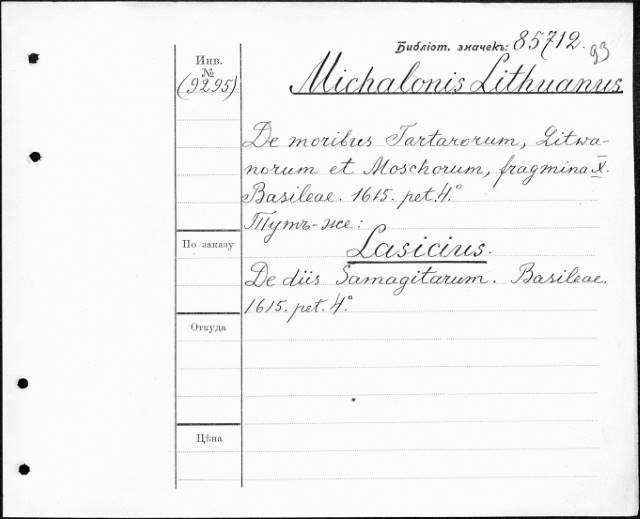 Библіот. значекъ: 85712. 93
Инв.
№
(9295)
Michalonis Lithuanus
De moribus Tartarorum, Litwa-
norum et Moschorum, fragmina X.
Basileae. 1615. pet. 4.°
Тутъ-же:
Lasicius.
По заказу
De diis Samagitarum. Basileae.
1615. pet. 4.°
Откуда
Цѣна